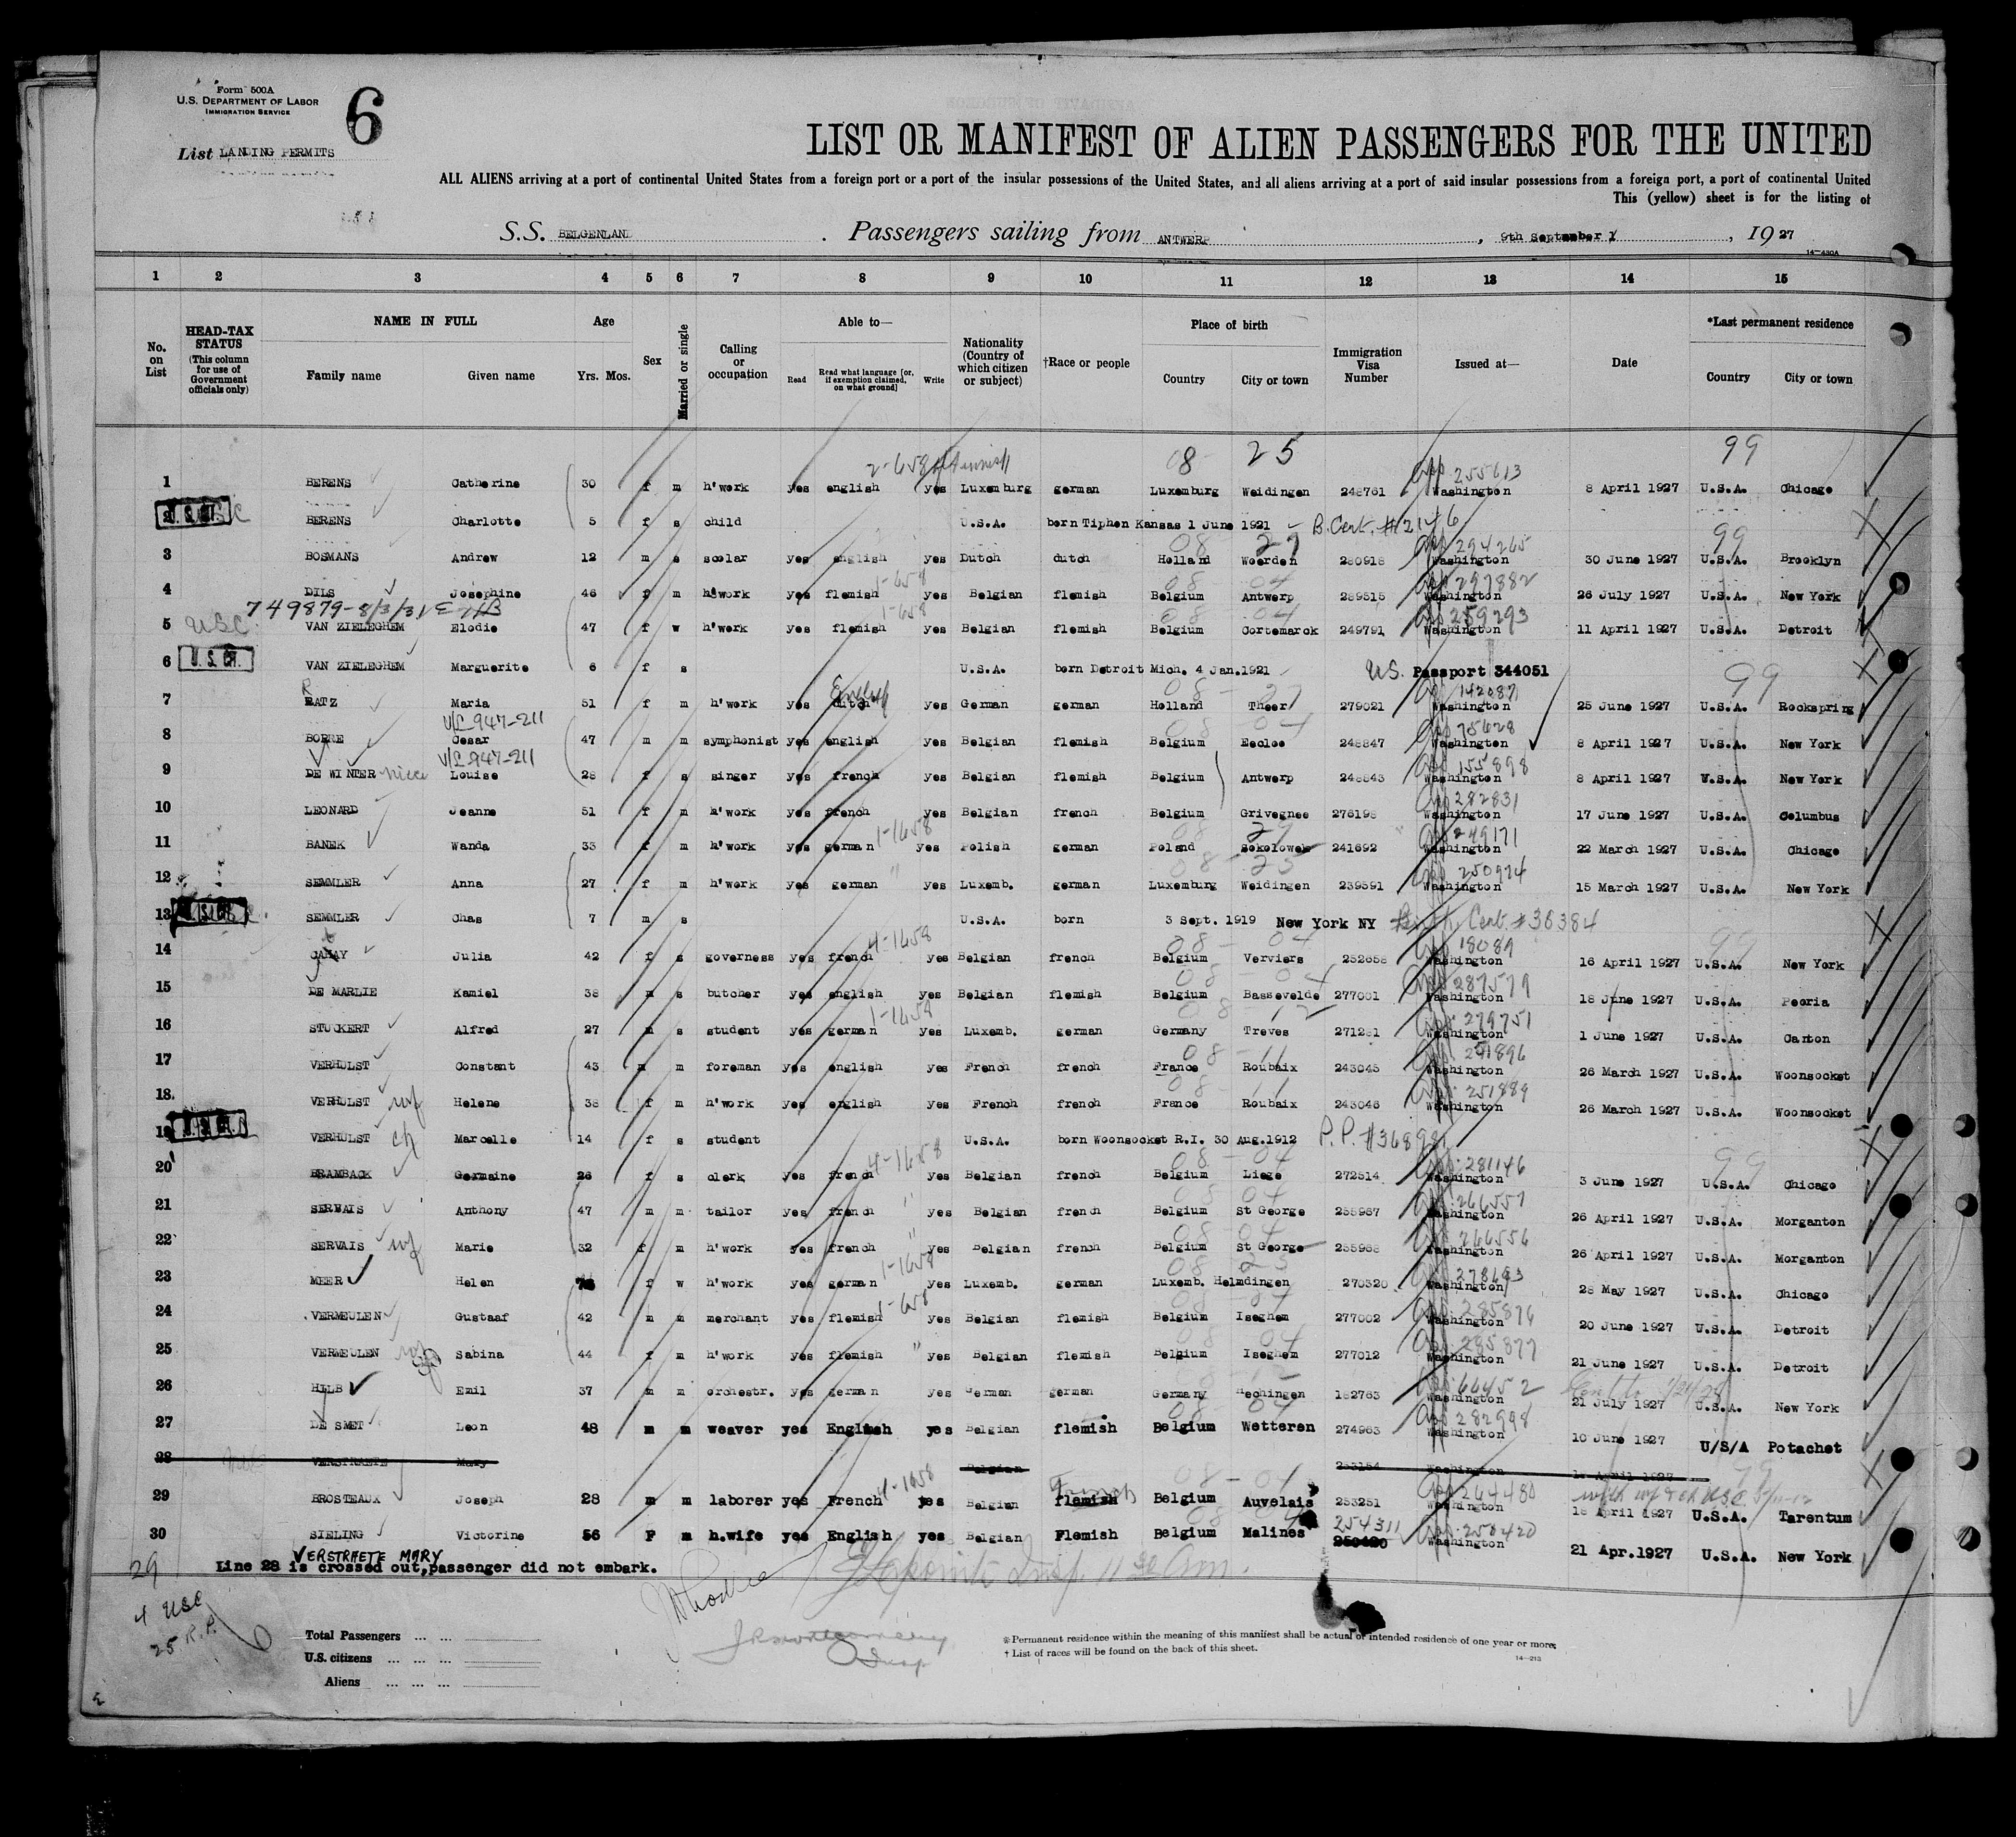 Form 500A
U.S. DEPARTMENT OF LABOR
IMMIGRATION SERVICE
6
List LANDING PERMITS
LIST OR MANIFEST OF ALIEN PASSENGERS FOR THE UNITED
ALL ALIENS arriving at a port of continental United States from a foreign port or a port of the insular possessions of the United States, and all aliens arriving at a port of said insular possessions from a foreign port, a port of continental United
This (yellow) sheet is for the listing of
S.S. BELGENLAND . Passengers sailing from ANTWERP , 9th September , 1927
14-430A
1 2 3 4 5 6 7 8 9 10 11 12 13 14 15
No. on List
HEAD-TAX STATUS (This column for use of Government officials only)
NAME IN FULL Family name Given name
Age Yrs. Mos.
Sex
Married or single
Calling or occupation
Able to— Read Read what language [or, if exemption claimed, on what ground] Write
Nationality (Country of which citizen or subject)
†Race or people
Place of birth Country City or town
Immigration Visa Number
Issued at—
Date
*Last permanent residence Country City or town
8 25 99
1 BERENS Catherine 30 f m h'work yes english yes Luxemburg german Luxemburg Weidingen 248761 255613 Washington 8 April 1927 U.S.A. Chicago
2 BERENS Charlotte 5 f s child U.S.A. born Tiphen Kansas 1 June 1921 B. Cert. #2146
3 BOSMANS Andrew 12 m s scolar yes english yes Dutch dutch Holland Woerden 280918 294265 Washington 30 June 1927 U.S.A. Brooklyn
4 DILS Josephine 46 f m h'work yes flemish yes Belgian flemish Belgium Antwerp 289515 297882 Washington 26 July 1927 U.S.A. New York
749879-8/3/31
5 USC VAN ZIELEGHEM Elodie 47 f w h'work yes flemish yes Belgian flemish Belgium Cortemarck 249791 259293 Washington 11 April 1927 U.S.A. Detroit
6 U.S. CIT. VAN ZIELEGHEM Marguerite 6 f s U.S.A. born Detroit Mich. 4 Jan.1921 US. Passport 344051
7 RATZ Maria 51 f m h'work yes dutch English yes German german Holland Theer 279021 142087 Washington 25 June 1927 U.S.A. Rockspring
V/L 947-211
8 BORRE Cesar 47 m m symphonist yes english yes Belgian flemish Belgium Eecloo 248847 75628 Washington 8 April 1927 U.S.A. New York
V/L 947-211
9 DE WINTER niece Louise 28 f s singer yes french yes Belgian flemish Belgium Antwerp 248843 155898 Washington 8 April 1927 U.S.A. New York
10 LEONARD Jeanne 51 f m h'work yes french yes Belgian french Belgium Grivegnee 276198 282831 Washington 17 June 1927 U.S.A. Columbus
11 BANEK Wanda 33 f m h'work yes german yes Polish german Poland Sokolowek 241692 249171 Washington 22 March 1927 U.S.A. Chicago
12 SEMMLER Anna 27 f m h'work yes german yes Luxemb. german Luxemburg Weidingen 239591 250974 Washington 15 March 1927 U.S.A. New York
13 SEMMLER Chas 7 m s U.S.A. born 3 Sept. 1919 New York NY Birth Cert. #36384
14 Julia 42 f s governess yes french yes Belgian french Belgium Verviers 252658 18089 Washington 16 April 1927 U.S.A. New York
15 DE MARLIE Kamiel 38 m s butcher yes english yes Belgian flemish Belgium Bassevelde 277001 287579 Washington 18 June 1927 U.S.A. Peoria
16 STUCKERT Alfred 27 m s student yes german yes Luxemb. german Germany Treves 271281 279751 Washington 1 June 1927 U.S.A. Canton
17 VERHULST Constant 43 m m foreman yes english yes French french France Roubaix 243045 Washington 26 March 1927 U.S.A. Woonsocket
18 VERHULST wf Helene 38 f m h'work yes english yes French french France Roubaix 243046 251889 Washington 26 March 1927 U.S.A. Woonsocket
19 VERHULST ch Marcelle 14 f s student U.S.A. born Woonsocket R.I. 30 Aug.1912 P.P. #368981
20 BRAMBACK Germaine 26 f s clerk yes french yes Belgian french Belgium Liege 272514 281146 Washington 3 June 1927 U.S.A. Chicago
21 SERVAIS Anthony 47 m m tailor yes french yes Belgian french Belgium St George 255987 266557 Washington 26 April 1927 U.S.A. Morganton
22 SERVAIS wf Marie 32 f m h'work yes french yes Belgian french Belgium St George 255988 266556 Washington 26 April 1927 U.S.A. Morganton
23 MEER Helen f w h'work yes german yes Luxemb. german Luxemb. Helmdingen 270320 278693 Washington 28 May 1927 U.S.A. Chicago
24 VERMEULEN Gustaaf 42 m m merchant yes flemish yes Belgian flemish Belgium Iseghem 277002 285876 Washington 20 June 1927 U.S.A. Detroit
25 VERMEULEN wf Sabina 44 f m h'work yes flemish yes Belgian flemish Belgium Iseghem 277012 285877 Washington 21 June 1927 U.S.A. Detroit
26 HILB Emil 37 m m orchestr. yes german yes German german Germany Hechingen 182763 66452 Washington 21 July 1927 U.S.A. New York
27 DE SMET Leon 48 m m weaver yes English yes Belgian flemish Belgium Wetteren 274963 282998 Washington 10 June 1927 U/S/A Potachet
28 VERSTRAETE Mary Belgian 253184 Washington April 1927
29 BROSTEAUX Joseph 28 m m laborer yes French yes Belgian flemish French Belgium Auvelais 253251 264480 Washington 18 April 1927 U.S.A. Tarentum
30 SIELING Victorine 56 F m h.wife yes English yes Belgian Flemish Belgium Malines 254311 250420 Washington 21 Apr.1927 U.S.A. New York
VERSTRAETE MARY
Line 28 is crossed out,passenger did not embark.
29
4 USC
25 R.P.
Total Passengers ... ...
U.S. citizens ... ... ...
Aliens ... ... ...
Insp
※Permanent residence within the meaning of this manifest shall be actual or intended residence of one year or more.
† List of races will be found on the back of this sheet.
14-213